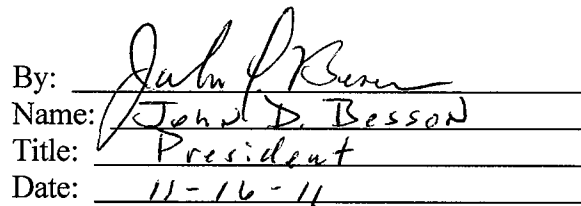 By: John D. Besson
Name: John D. Besson
Title: President
Date: 11-16-11